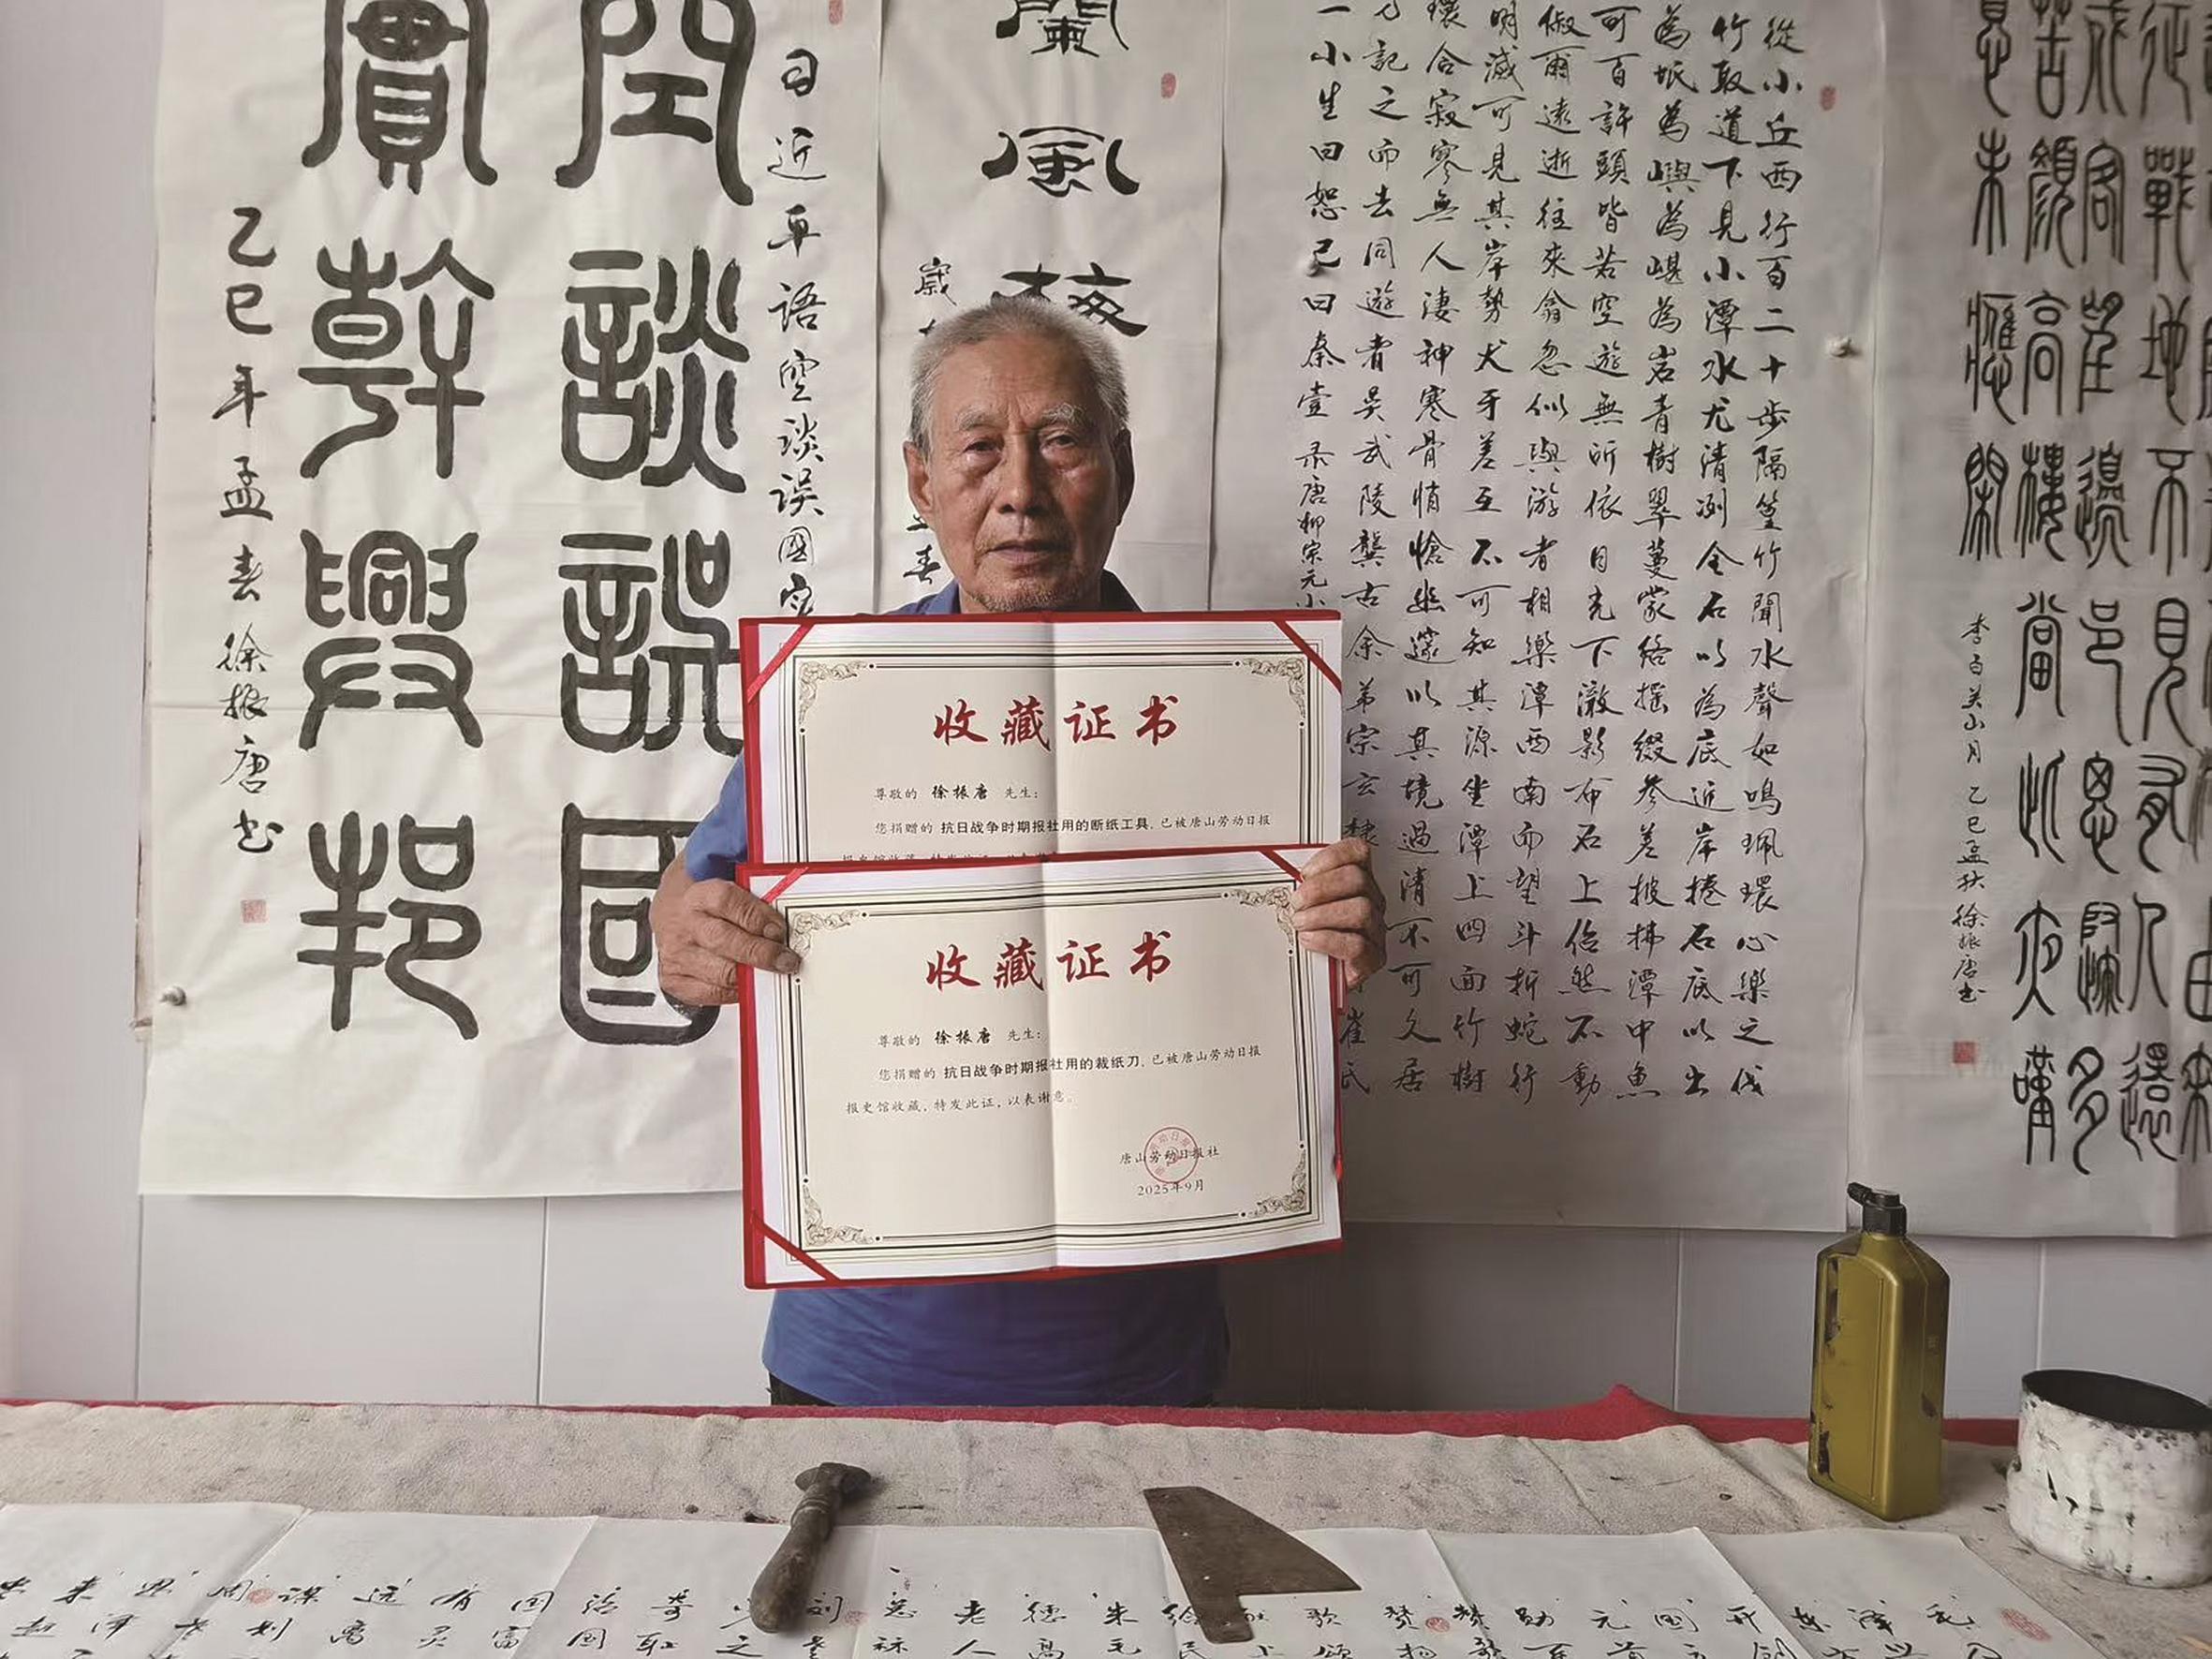 习近平语空谈误國实
空談誤國
實幹興邦
乙巳年孟春徐振唐书
蘭風梅
歲
春
從小丘西行百二十步隔篁竹聞水聲如鳴珮環心樂之伐
竹取道下見小潭水尤清洌全石以為底近岸捲石底以出
為坻為嶼為嵁為岩青樹翠蔓蒙络摇缀參差披拂潭中魚
可百許頭皆若空遊無所依日光下澈影布石上佁然不動
俶爾遠逝往來翕忽似與游者相樂潭西南而望斗折蛇行
明滅可見其岸勢犬牙差互不可知其源坐潭上四面竹樹
環合寂寥無人淒神寒骨悄愴幽邃以其境過清不可久居
記之而去同遊者吴武陵龔古余弟宗玄 崔氏
一小生曰恕己曰奉壹 录唐柳宗元小
征戰地不見有人還
戍客望邊邑思歸多
苦顏高樓當此夜嘆
息未應閑
李白关山月 乙巳孟秋 徐振唐书
收藏证书
尊敬的 徐振唐 先生：
您捐赠的 抗日战争时期报社用的断纸工具，已被唐山劳动日报
收藏证书
尊敬的 徐振唐 先生：
您捐赠的 抗日战争时期报社用的裁纸刀，已被唐山劳动日报
报史馆收藏，特发此证，以表谢意。
唐山劳动日报社
2025年9月